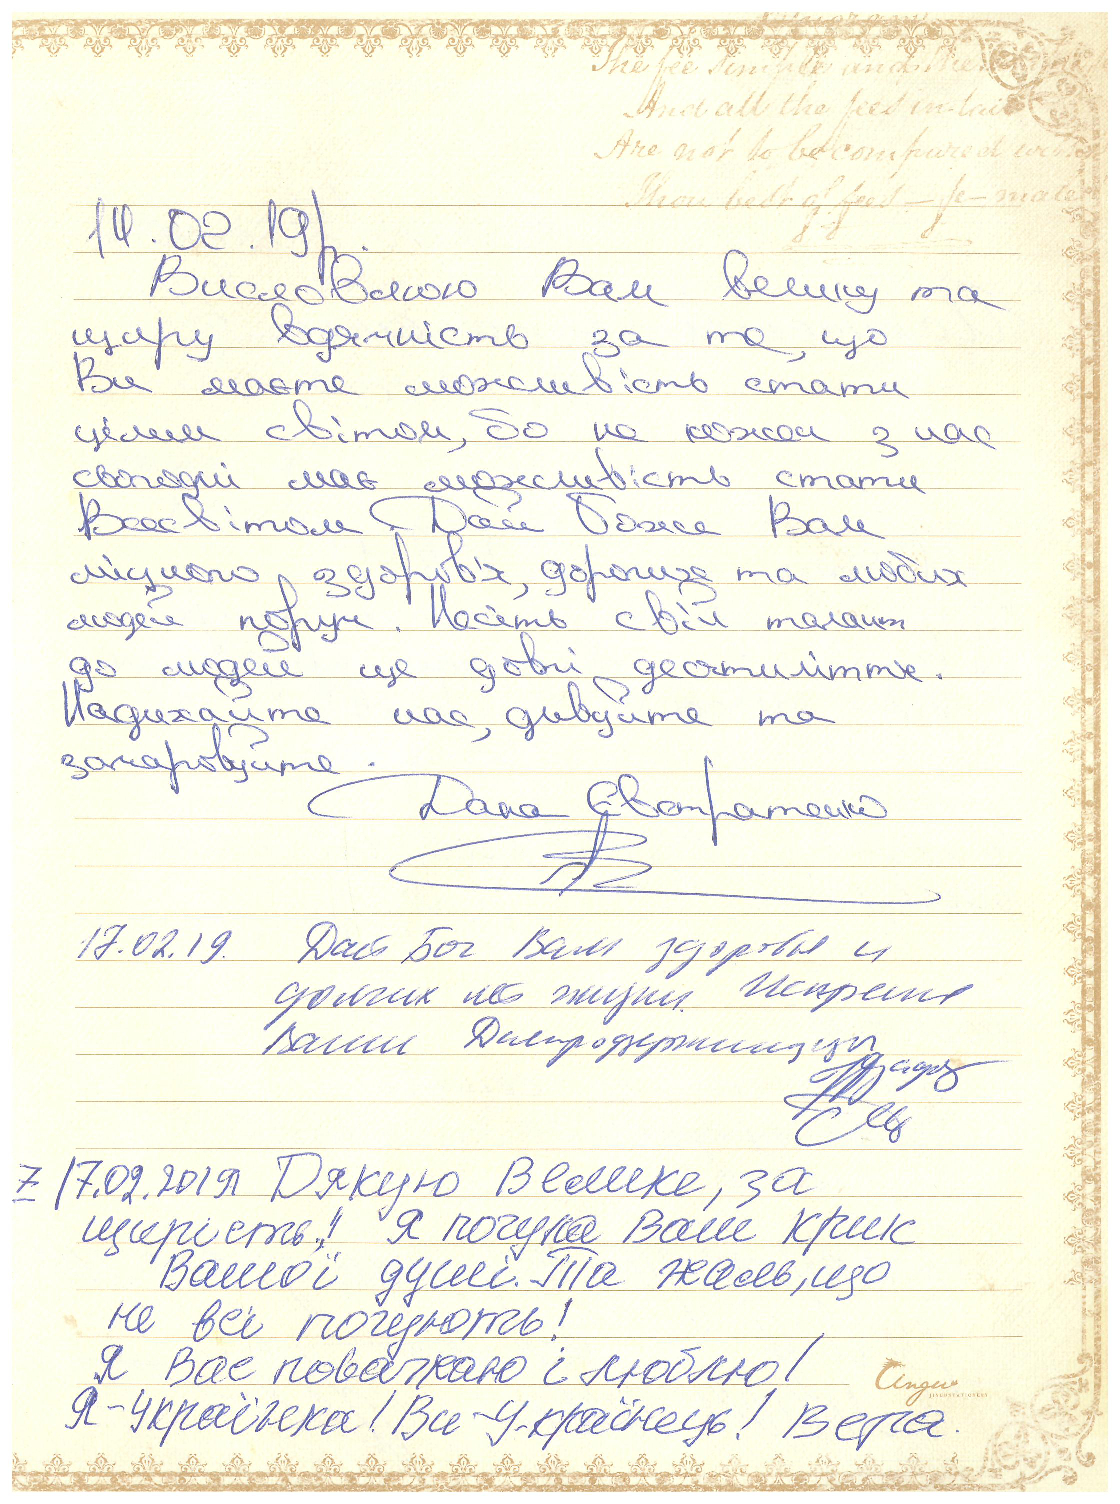 The fee simple and the
And all the fees in-tail
Are not to be compared with
Thou best of fees – fe – male
14.02.19р.
Висловлюю Вам велику та
щиру вдячність за те, що
Ви маєте можливість стати
цілим світом, бо не кожен з нас
сьогодні має можливість стати
Всесвітом. Дай Боже Вам
міцного здоров'я, дорогих та любих
людей поруч. Несіть свій талант
до людей ще довгі десятиліття.
Надихайте нас, дивуйте та
зачаровуйте.
Дана Євтратенко
17.02.19. Дай Бог Вам здоровья и
долгих лет жизни. Искренне
Ваши Днепродзержинцы
17.02.2019 Дякую Велике, за
щирість!! Я почула Ваш крик
Вашої душі. Та жаль, що
не всі почують!
Я Вас поважаю і люблю!
Я-Українка! Ви-Українець! Вера.
Angel